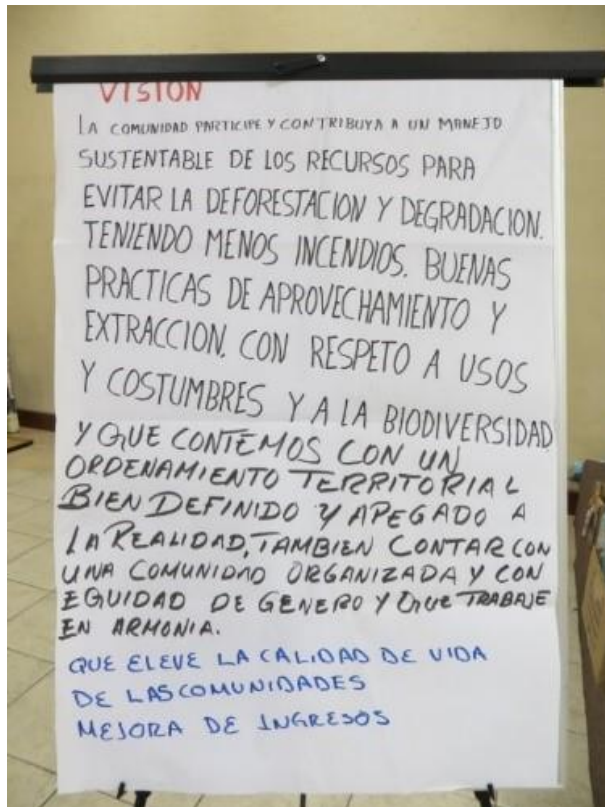 VISION
LA COMUNIDAD PARTICIPE Y CONTRIBUYA A UN MANEJO
SUSTENTABLE DE LOS RECURSOS PARA
EVITAR LA DEFORESTACION Y DEGRADACION.
TENIENDO MENOS INCENDIOS. BUENAS
PRACTICAS DE APROVECHAMIENTO Y
EXTRACCION, CON RESPETO A USOS
Y COSTUMBRES Y A LA BIODIVERSIDAD
Y QUE CONTEMOS CON UN
ORDENAMIENTO TERRITORIAL
BIEN DEFINIDO Y APEGADO A
LA REALIDAD, TAMBIEN CONTAR CON
UNA COMUNIDAD ORGANIZADA Y CON
EQUIDAD DE GENERO Y QUE TRABAJE
EN ARMONIA.
QUE ELEVE LA CALIDAD DE VIDA
DE LAS COMUNIDADES
MEJORA DE INGRESOS